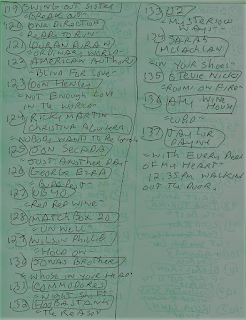 119 SWING OUT SISTER
-BREAK OUT
120 ONE DIRECTION
READY TO RUN
121 DURAN DURAN
ORDINARY WORLD
122 AMERICAN AUTHOR
"BLIND FOR LOVE"
123 DON HENLEY
-NOT ENOUGH LOVE
IN THE WORLD
124 RICKY MARTIN
CHRISTINA AGUILERA
NOBODY WANTS TO BE LONELY
125 JON SECADA
-JUST ANOTHER DAY
126 GEORGE EZRA
-BUDAPEST
127 UB40
-RED RED WINE-
128 MATCHBOX 20
-UNWELL
129 WILSON PHILLIP
-HOLD ON
130 JONAS BROTHER
131 COMMODORES
-NIGHT SHIFT
132 HOOBASTANK
-THE REASON
133 U2
-MYSTERIOUS
WAYS-
134 SARAH
MCLACHLAN
-IN YOUR SHOES
135 STEVIE NICKS
-ROOMS ON FIRE-
136 AMY WINE
HOUSE
137 TAYLOR
DAYNE
-WITH EVERY BEAT
OF MY HEART-
12:35PM WALKED
OUT THE DOOR.